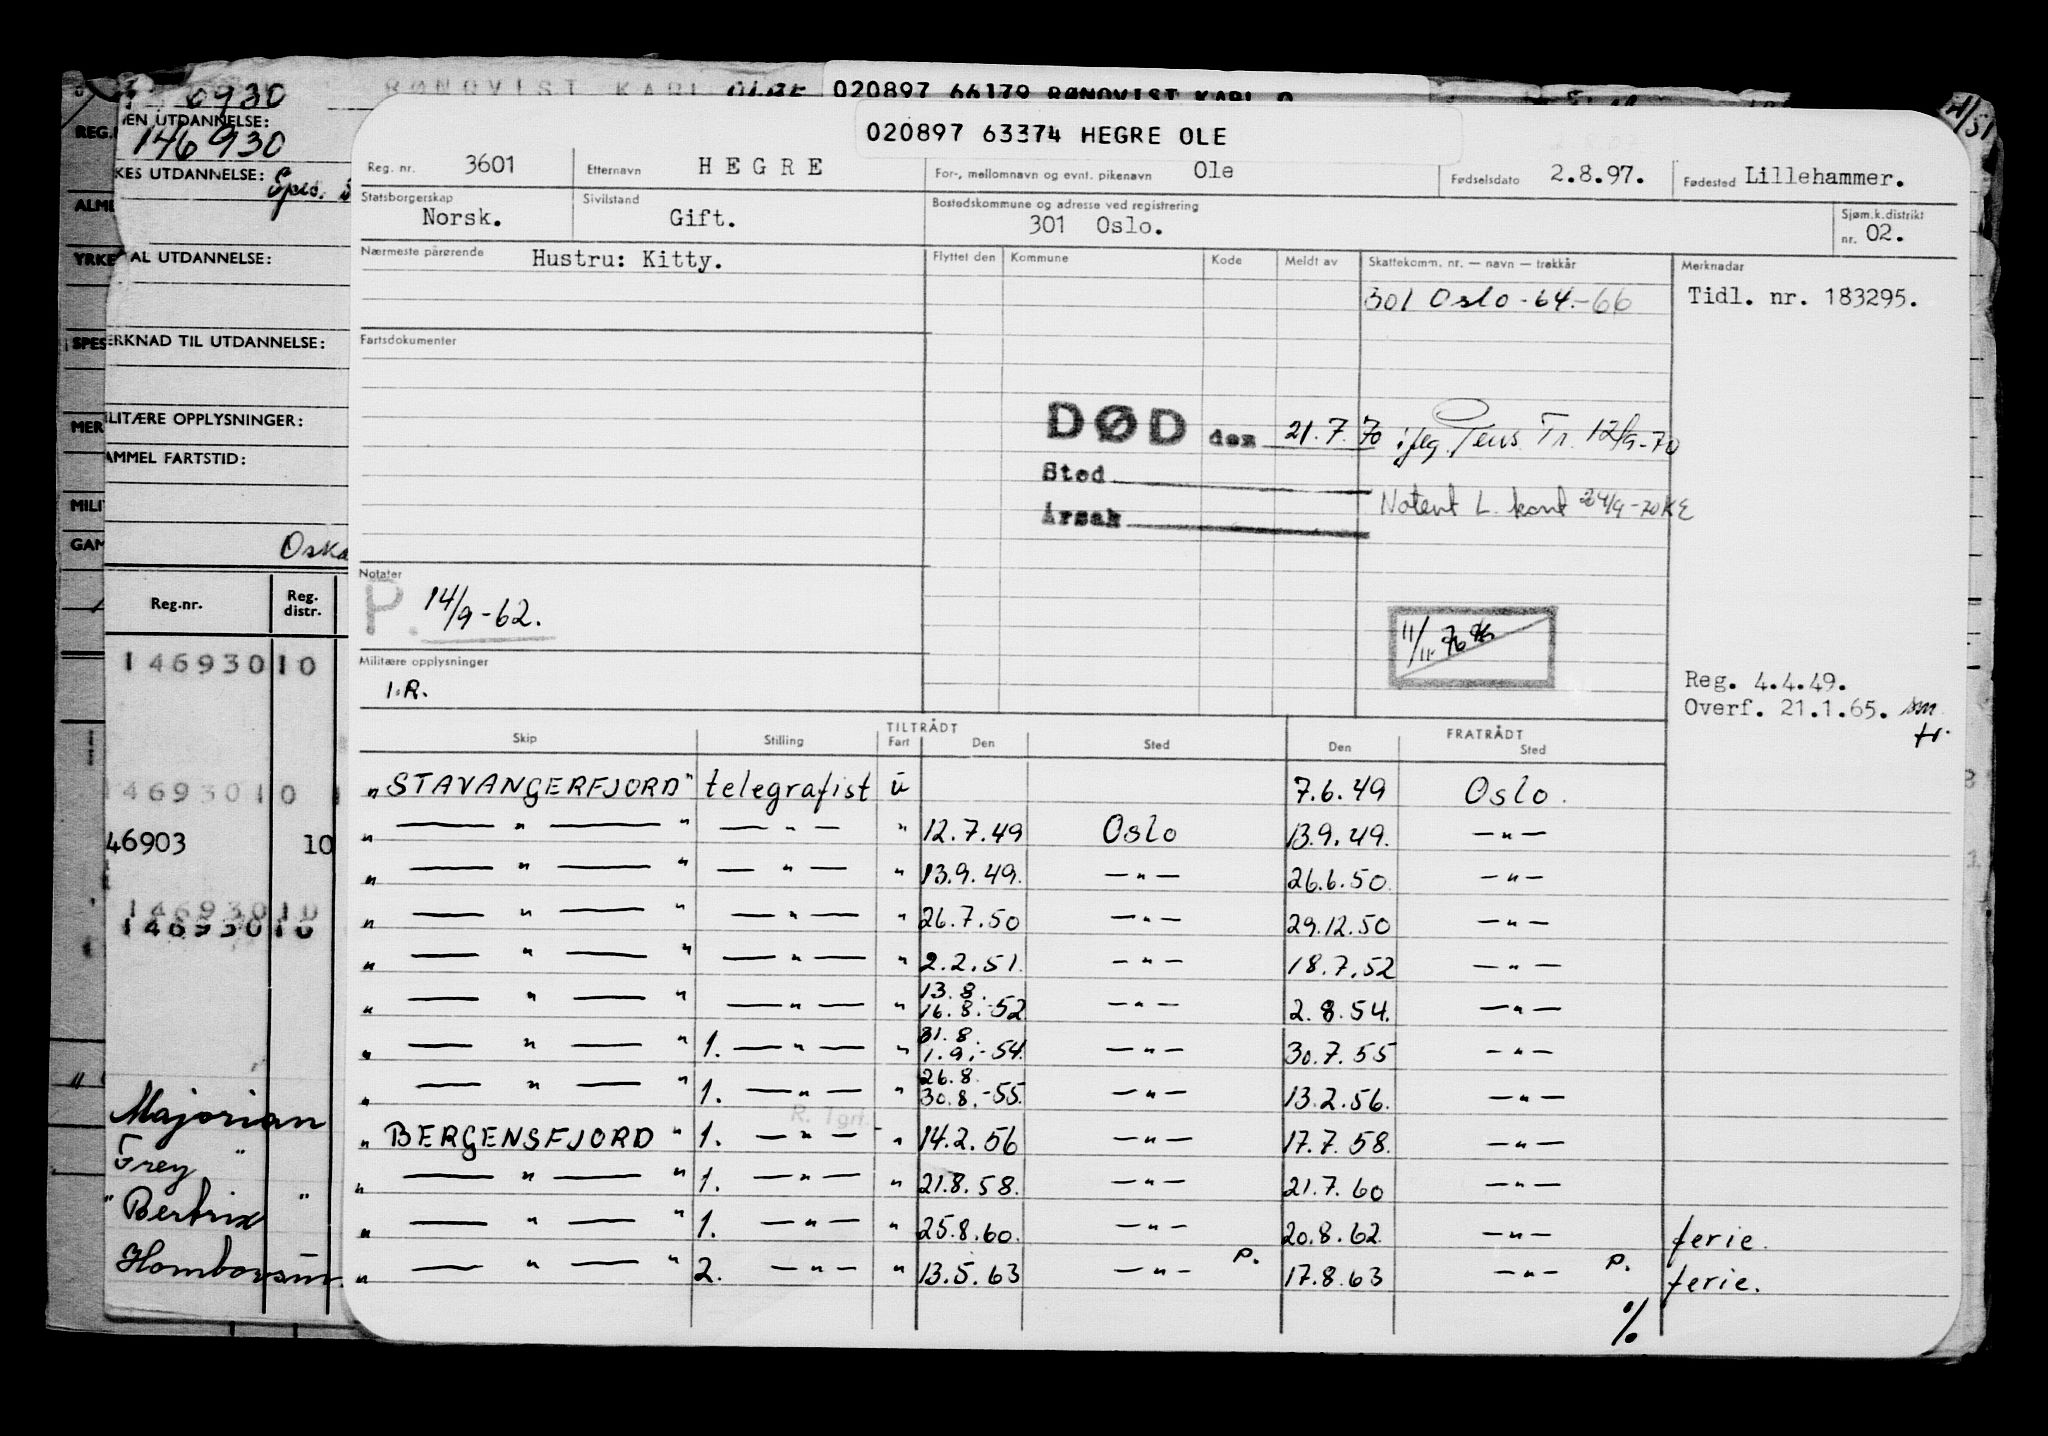 6930
RØNQVIST KARL OLAF
020897 66179 RØNQVIST KARL O
020897 63374 HEGRE OLE
Reg. nr. 3601 Etternavn HEGRE For-, mellomnavn og evnt. pikenavn Ole Fødselsdato 2.8.97. Fødested Lillehammer.
Statsborgerskap Norsk. Sivilstand Gift. Bostedskommune og adresse ved registrering 301 Oslo. Sjøm.k.distrikt nr. 02.
Nærmeste pårørende Hustru: Kitty. Flyttet den Kommune Kode Meldt av Skattekomm. nr. — navn — trekkår Merknader
301 Oslo - 64.-66 Tidl. nr. 183295.
Fartsdokumenter
DØD den 21.7.70 iføg. Pens. Tr. 12/9-70
Sted
Notert L. kont 24/9-70 KE
Årsak
Notater
P. 14/9-62.
11/11 76
Militære opplysninger
I.R.
Reg. 4.4.49.
Overf. 21.1.65. sm
tr.
TILTRÅDT FRATRÅDT
Skip Stilling Fart Den Sted Den Sted
"STAVANGERFJORD" telegrafist u 7.6.49 Oslo.
" — " — " — " — " 12.7.49 Oslo 13.9.49. — " —
" — " — " — " — " 13.9.49. — " — 26.6.50. — " —
" — " — " — " — " 26.7.50 — " — 29.12.50 — " —
" — " — " — " — " 2.2.51. — " — 18.7.52 — " —
" — " — " — " — " 13.8. 16.8.-52 — " — 2.8.54. — " —
" — " — " 1. — " — " 31.8. 1.9.-54. — " — 30.7.55 — " —
" — " — " 1. — " — " 26.8. 30.8.-55. — " — 13.2.56. — " —
R. Tgrf.
"BERGENSFJORD" 1. — " — " 14.2.56 — " — 17.7.58. — " —
" — " — " 1. — " — " 21.8.58. — " — 21.7.60 — " —
" — " — " 1. — " — " 25.8.60. — " — 20.8.62. — " — ferie.
" — " — " 2. — " — " 13.5.63 — " — P. 17.8.63 — " — P. ferie.
%
EN UTDANNELSE:
146930
KES UTDANNELSE:
AL UTDANNELSE:
ERKNAD TIL UTDANNELSE:
LITÆRE OPPLYSNINGER:
AMMEL FARTSTID:
Oska
Reg.nr. Reg. distr.
146930 10
146930 10
46903 10
146930 10
146930 10
Majorian
Frey "
"Bertrix "
Homborsun
REG.
ALM
YRKE
SPES
MER
MILI
GAM